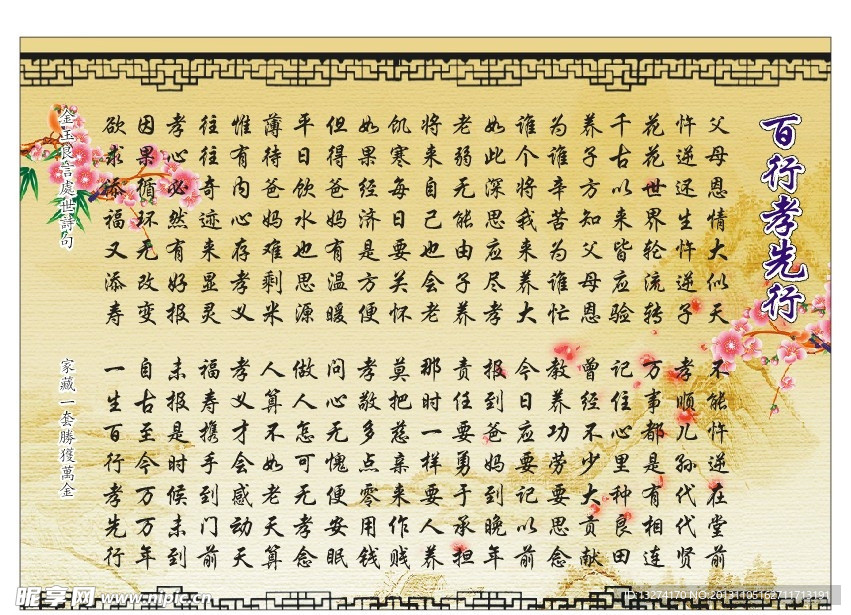 百行孝先行
父母恩情大似天 不能忤逆在堂前
忤逆还生忤逆子 孝顺儿孙代代贤
花花世界轮流转 万事都是有相连
千古以来皆应验 记住心里种良田
养子方知父母恩 曾经不少大贡献
为谁辛苦为谁忙 教养功劳要思念
谁个将我来养大 今日应要记以前
如此深思应尽孝 报到爸妈到晚年
老弱无能由子养 责任要勇于承担
将来自己也会老 那时一样要人养
饥寒每日要关怀 莫把慈亲来作贱
如果经济是方便 孝敬多点零用钱
但得爸妈有温暖 问心无愧便安眠
平日饮水也思源 做人怎可无孝念
薄待爸妈难剩米 人算不如老天算
惟有内心存孝义 孝义才会感动天
往往奇迹来显灵 福寿携手到门前
孝心必然有好报 未报是时候未到
因果循环无改变 自古至今万万年
欲求添福又添寿 一生百行孝先行
金玉良言處世詩句 家藏一套勝獲萬金
昵享网 www.nipic.cn
ID:13274170 NO:20131105162711713191